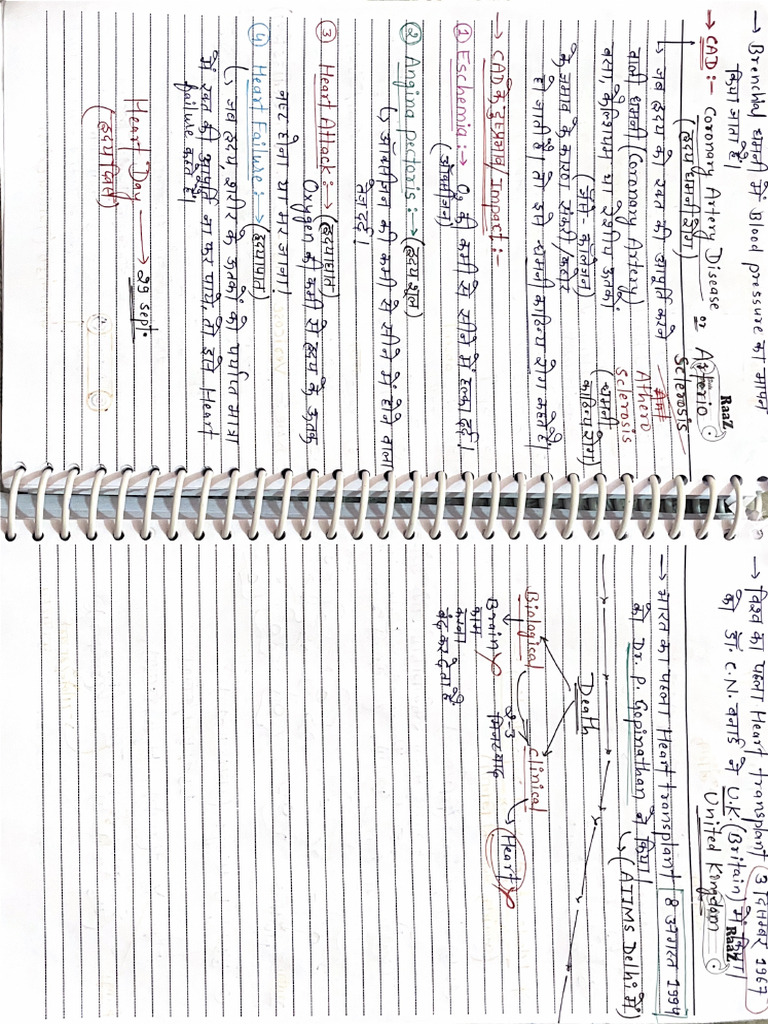 → Bronchly धमनी में Blood pressure का मापन
किया जाता है।
→ CAD :- Coronary Artery Disease or Arterio
(हृदय धमनी रोग)
Sclerosis
↳ जब हृदय को रक्त की आपूर्ति करने
वाली धमनी (Coronary Artery)
वसा, कैल्शियम या रेशीय उतकों
के जमाव के कारण संकरी/कठोर
(जैसे- कोलेजन)
हो जाती है। तो इसे धमनी काठिन्य रोग कहते हैं।
Athero
Sclerosis
(धमनी
काठिन्य रोग)
RaaZ
→ CAD के दुष्प्रभाव/Impact :-
① Eschemia :→ O₂ की कमी से सीने में हल्का दर्द।
(ऑक्सीजन)
② Angina pectoris :→ (हृदय शूल)
↳ ऑक्सीजन की कमी से सीने में होने वाला
तेज दर्द।
③ Heart Attack :→ (हृदयाघात)
Oxygen की कमी से हृदय के ऊतक
नष्ट होना या मर जाना।
④ Heart Failure :→ (हृदयपात)
↳ जब हृदय शरीर के ऊतकों को पर्याप्त मात्रा
में रक्त की आपूर्ति ना कर पाये, तो इसे Heart
failure कहते हैं।
Heart Day → 29 sept.
(हृदय दिवस)
→ विश्व का पहला Heart transplant 3 दिसम्बर 1967
को डॉ. C.N. बनार्ड ने U.K. (Britain) में किया
United Kingdom
RaaZ
→ भारत का पहला Heart transplant 8 अगस्त 1994
को Dr. P. Gopinathan ने किया।
↳ (AIIMS Delhi में)
Death
Biological
Clinical
2-3
मिनट बाद
Brain
काम
करना
बंद कर देता है
Heart